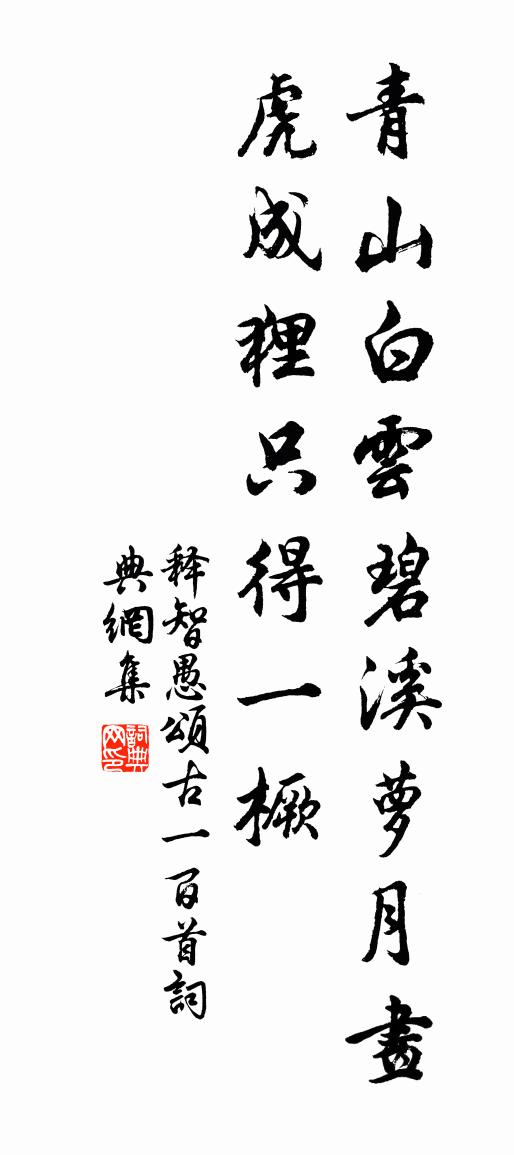 青山白雲碧溪萝月畫
虎成狸只得一橛
释智愚頌古一百首詞
典網集
詞典网印